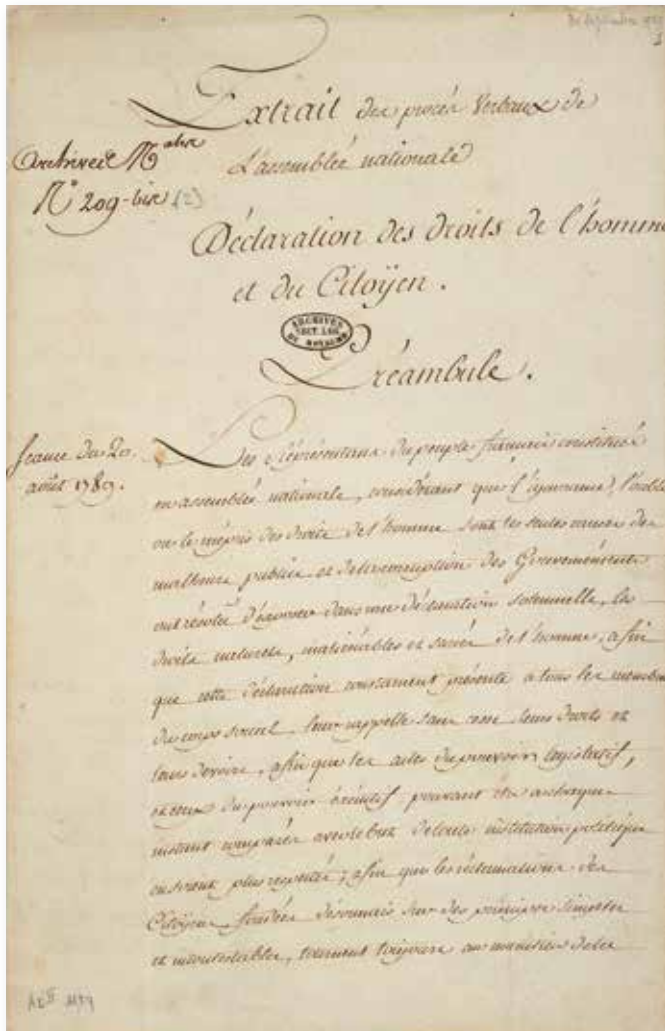 Extrait des procès Verbaux de
L'assemblée nationale
Archives
N° 209-bis (2)
Déclaration des droits de l'homme
et du Citoÿen.
ARCHIVES
SECT. LEG.
DU ROYAUME
Préambule.
Séance du 20.
août 1789.
Les Représentans du peuple françois constitués
en assemblée nationale, considérant que l'ignorance, l'oubli
ou le mépris des droits de l'homme sont les seules causes des
malheurs publics et de la corruption des Gouvernements
ont résolu d'exposer dans une déclaration solemnelle, les
droits naturels, inaliénables et sacrés de l'homme, afin
que cette déclaration constament présente à tous les membres
du corps social, leur rappelle sans cesse leurs droits et
leurs devoirs, afin que les actes du pouvoir législatif,
et ceux du pouvoir exécutif pouvant être à chaque
instant comparés avec le but de toute institution politique
en soient plus respectés; afin que les réclamations des
Citoÿens fondées désormais sur des principes simples
et incontestables, tournent toujours au maintien de la